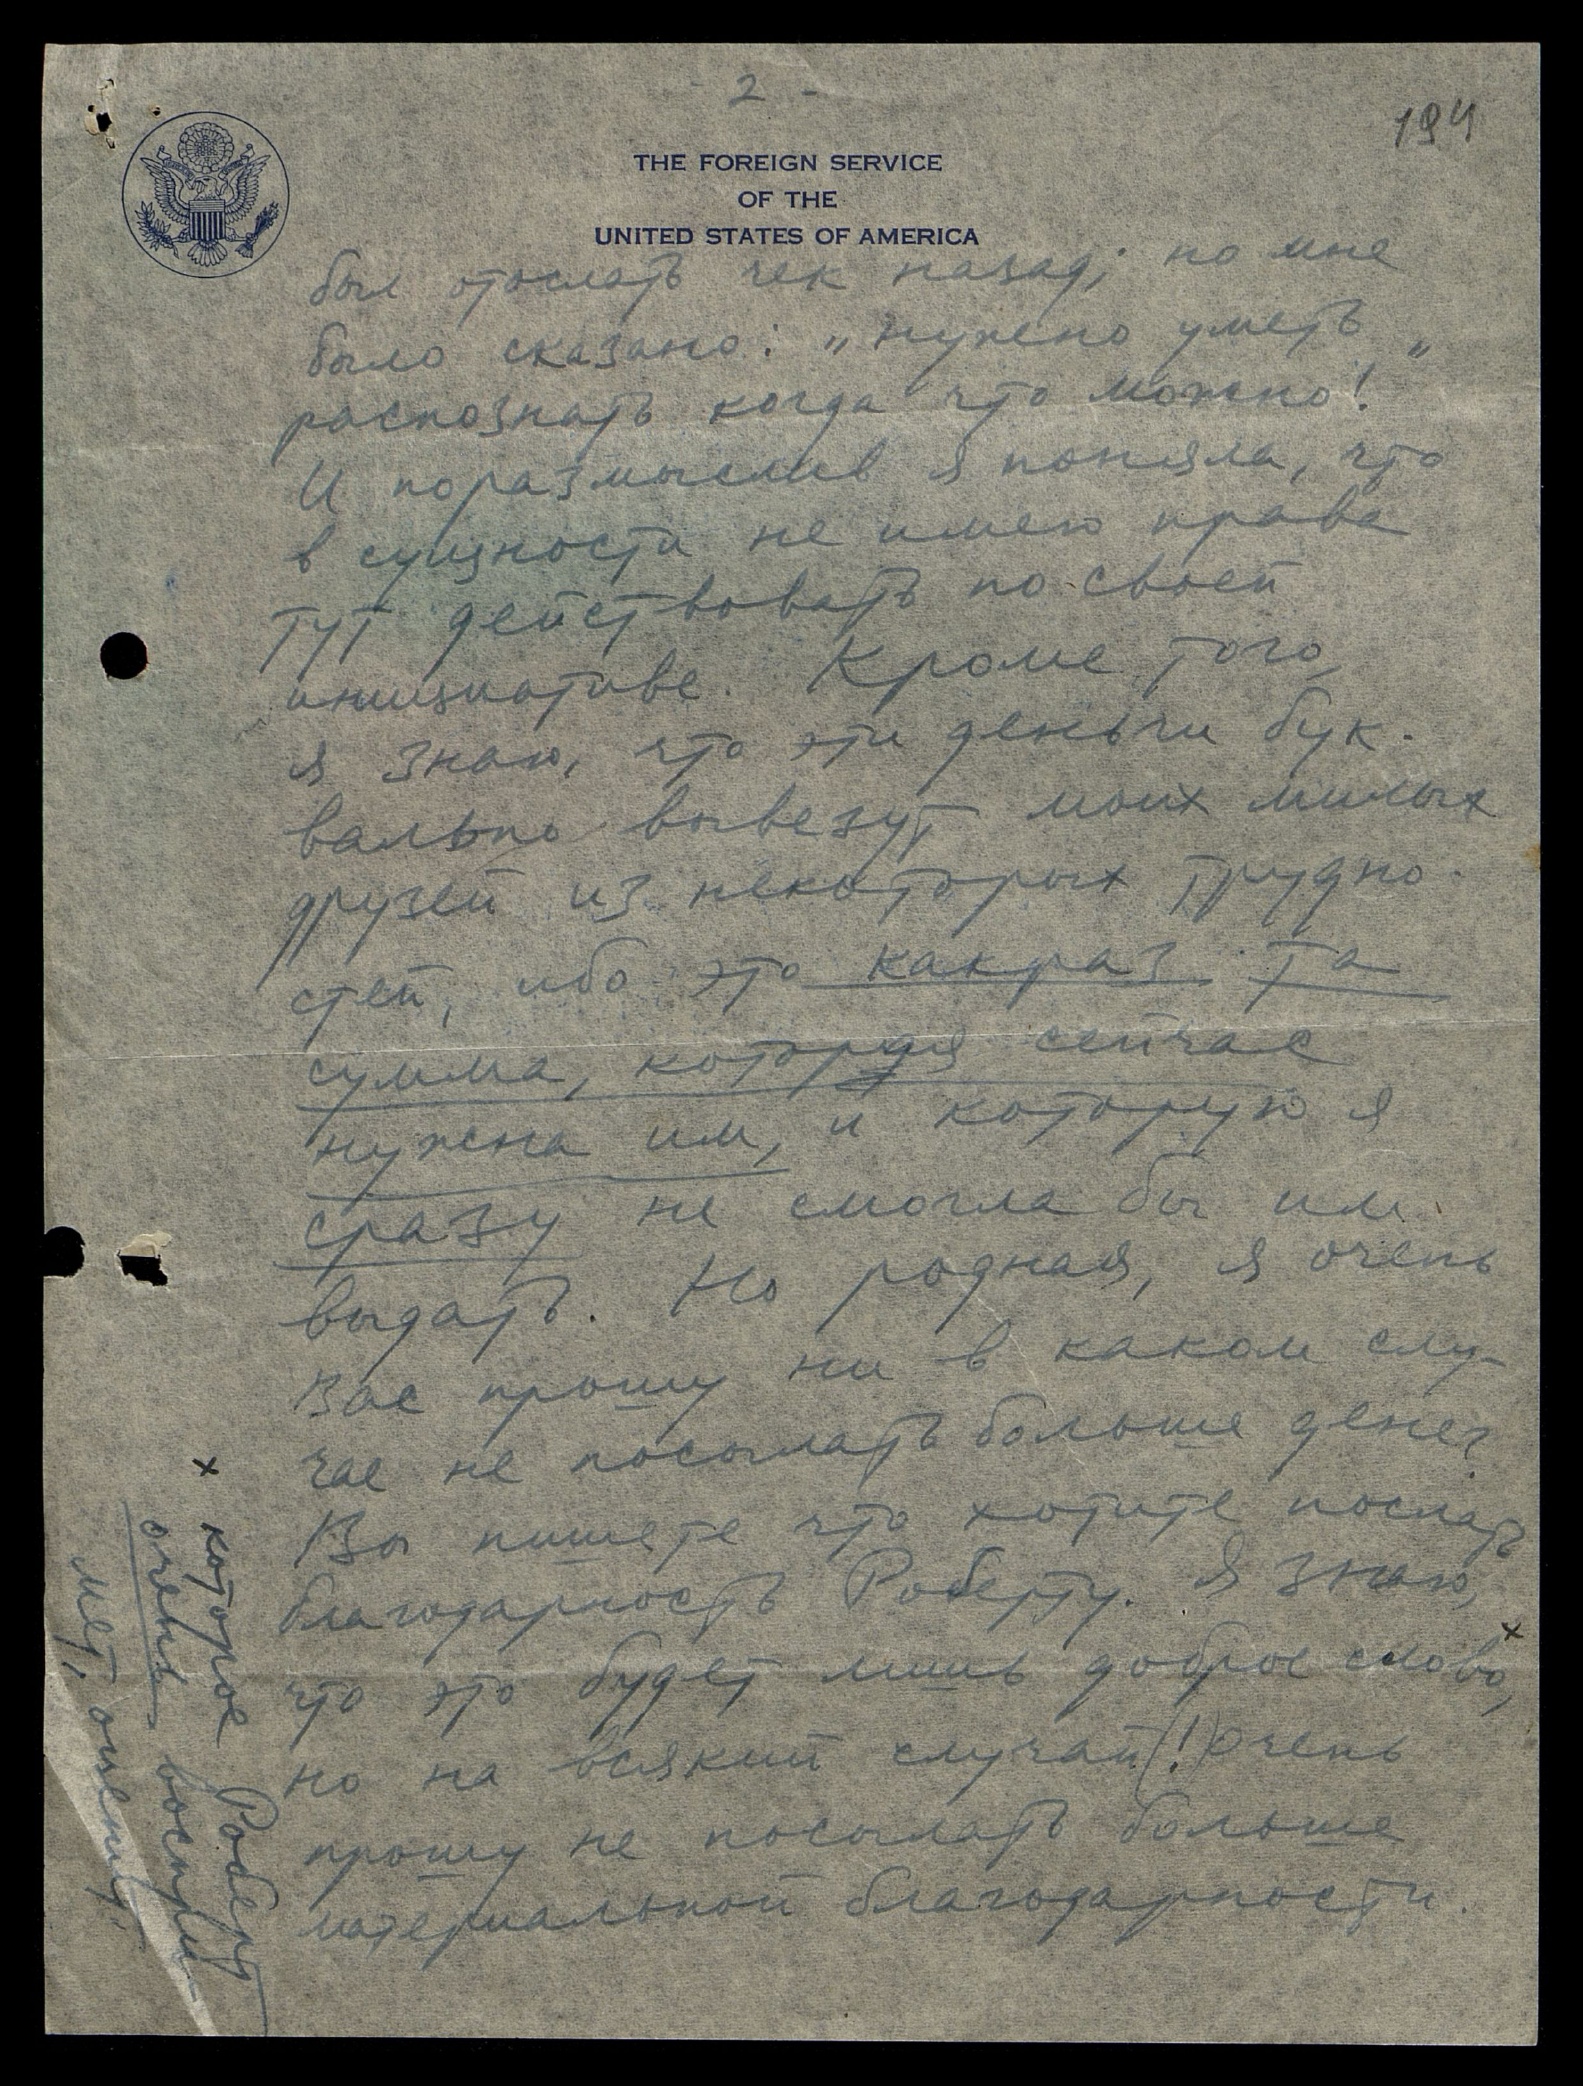 - 2 -
194
THE FOREIGN SERVICE
OF THE
UNITED STATES OF AMERICA
был отослать чек назад; но мне
было сказано: „нужно уметь
распознать когда что можно!"
И поразмыслив я поняла, что
в сущности не имею права
тут действовать по своей
инициативе. Кроме того,
я знаю, что эти деньги бук-
вально вывезут моих милых
друзей из некоторых трудно-
стей, ибо это какраз та
сумма, которая сейчас
нужна им, и которую я
сразу не смогла бы им
выдать. Но родная, я очень
Вас прошу ни в каком слу-
чае не посылать больше денег.
Вы пишете что хотите послать
благодарность Роберту. Я знаю,
что это будет лишь доброе слово, x
но на всякий случай (!) очень
прошу не посылать больше
материальной благодарности.
x которое Роберт
очень воспри-
мет, оценит.